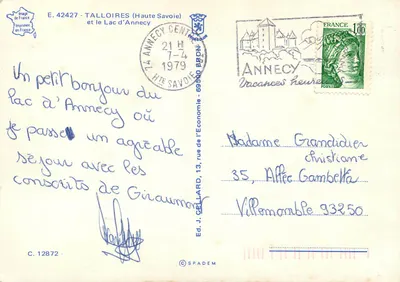 E. 42427 - TALLOIRES (Haute Savoie)
et le Lac d'Annecy
Un petit bonjour du
lac d'Annecy où
je passe un agréable
séjour avec les
conscrits de Giraumont
C. 12872
74 ANNECY CENTRE
21 H
7-4
1979
HTE SAVOIE
ANNECY
Vacances heureuses
FRANCE
1,00
Ed. J. CELLARD, 13, rue de l'Economie - 69500 BRON
Madame Grandidier
Christiane
35, Allée Gambetta
Villemomble 93250
© SPADEM